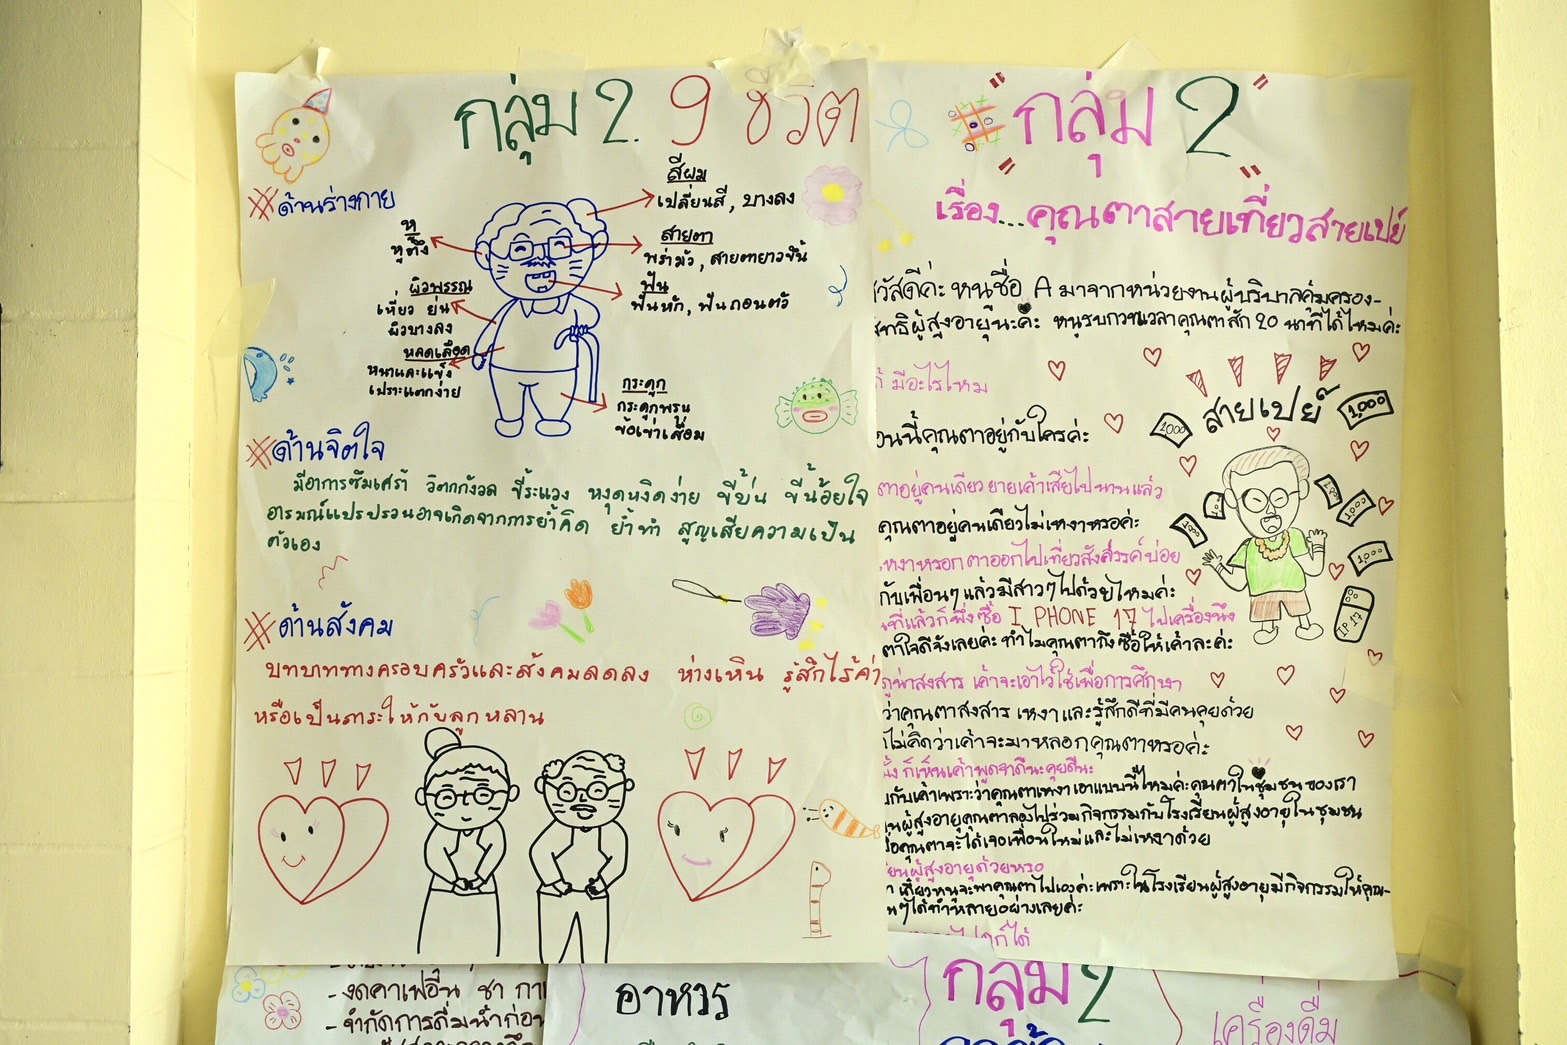 กลุ่ม 2. 9 ชีวิต
ด้านร่างกาย
สีผม
เปลี่ยนสี, บางลง
หู
หูตึง
สายตา
พร่ามัว, สายตายาวขึ้น
ฟัน
ฟันหัก, ฟันถอนตัว
ผิวพรรณ
เหี่ยว ย่น
ผิวบางลง
หลอดเลือด
หนาและแข็ง
เปราะแตกง่าย
กระดูก
กระดูกพรุน
ข้อเข่าเสื่อม
ด้านจิตใจ
มีอาการซึมเศร้า วิตกกังวล ขี้ระแวง หงุดหงิดง่าย ขี้บ่น ขี้น้อยใจ
อารมณ์แปรปรวนอาจเกิดจากการย้ำคิด ย้ำทำ สูญเสียความเป็น
ตัวเอง
ด้านสังคม
บทบาททางครอบครัวและสังคมลดลง ห่างเหิน รู้สึกไร้ค่า
หรือเป็นภาระให้กับลูกหลาน
"กลุ่ม 2"
เรื่อง...คุณตาสายเที่ยวสายเปย์
วัสดีค่ะ หนูชื่อ A มาจากหน่วยงานผู้บริบาลคุ้มครอง-
สิทธิผู้สูงอายุนะคะ หนูรบกวนเวลาคุณตาสัก 20 นาทีได้ไหมค่ะ
มีอะไรไหม
นนี้คุณตาอยู่กับใครค่ะ
ตาอยู่คนเดียวยายเค้าเสียไปนานแล้ว
คุณตาอยู่คนเดียวไม่เหงาหรอค่ะ
เหงาหรอก ตาออกไปเที่ยวสังสรรค์บ่อย
กับเพื่อนๆ แล้วมีสาวๆไปด้วยไหมค่ะ
ที่แล้วก็พึ่งซื้อ I PHONE 17 ไปเครื่องนึง
ตาใจดีจังเลยค่ะ ทำไมคุณตาถึงซื้อให้เค้าละค่ะ
น่าสงสาร เค้าจะเอาไว้ใช้เพื่อการศึกษา
ว่าคุณตาสงสาร เหงา และรู้สึกดีที่มีคนคุยด้วย
ไม่คิดว่าเค้าจะมาหลอกคุณตาหรอค่ะ
ก็เห็นเค้าพูดจาดีนะคุยดีนะ
กับเค้าเพราะว่าคุณตาเหงา เอาแบบนี้ไหมค่ะคุณตาในชุมชนของเรา
ผู้สูงอายุคุณตาลองไปร่วมกิจกรรมกับโรงเรียนผู้สูงอายุในชุมชน
คุณตาจะได้เจอเพื่อนใหม่และไม่เหงาด้วย
ผู้สูงอายุด้วยหรอ
เดี๋ยวหนูจะพาคุณตาไปเองค่ะเพราะในโรงเรียนผู้สูงอายุมีกิจกรรมให้คุณ-
ๆได้ทำหลายอย่างเลยค่ะ
ก็ได้
สายเปย์
1000
1,000
1000
1,000
1,000
1,000
1,000
IP 17
- งดคาเฟอีน ชา กา
- จำกัดการดื่มน้ำก่อน
อาหาร
กลุ่ม 2
เครื่องดื่ม